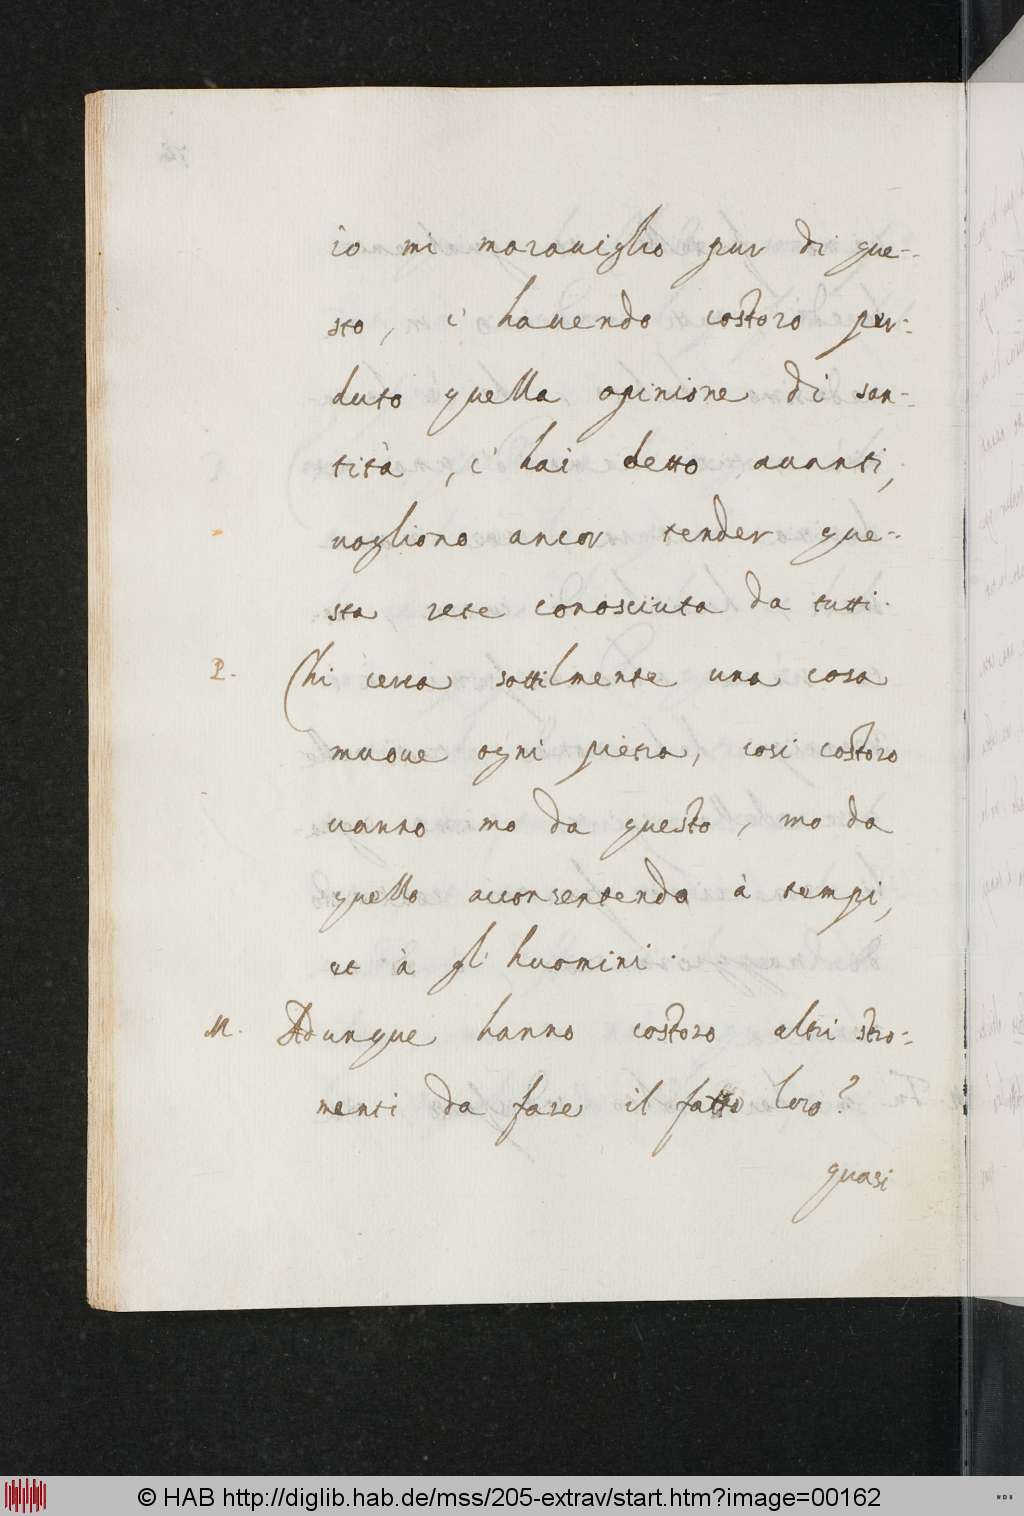 io mi marauiglio pur di que-
sto, c' hauendo costoro per-
duto quella opinione di san-
tità, c' hai detto auanti,
uogliono ancor tender que-
sta rete conosciuta da tutti.
P. Chi cerca sottilmente una cosa
muoue ogni pietra, cosi costoro
uanno mo da questo, mo da
quello acconsentendo à tempi,
et à gl' huomini.
M. Adunque hanno costoro altri stro-
menti da fare il fatto loro?
quasi
© HAB http://diglib.hab.de/mss/205-extrav/start.htm?image=00162